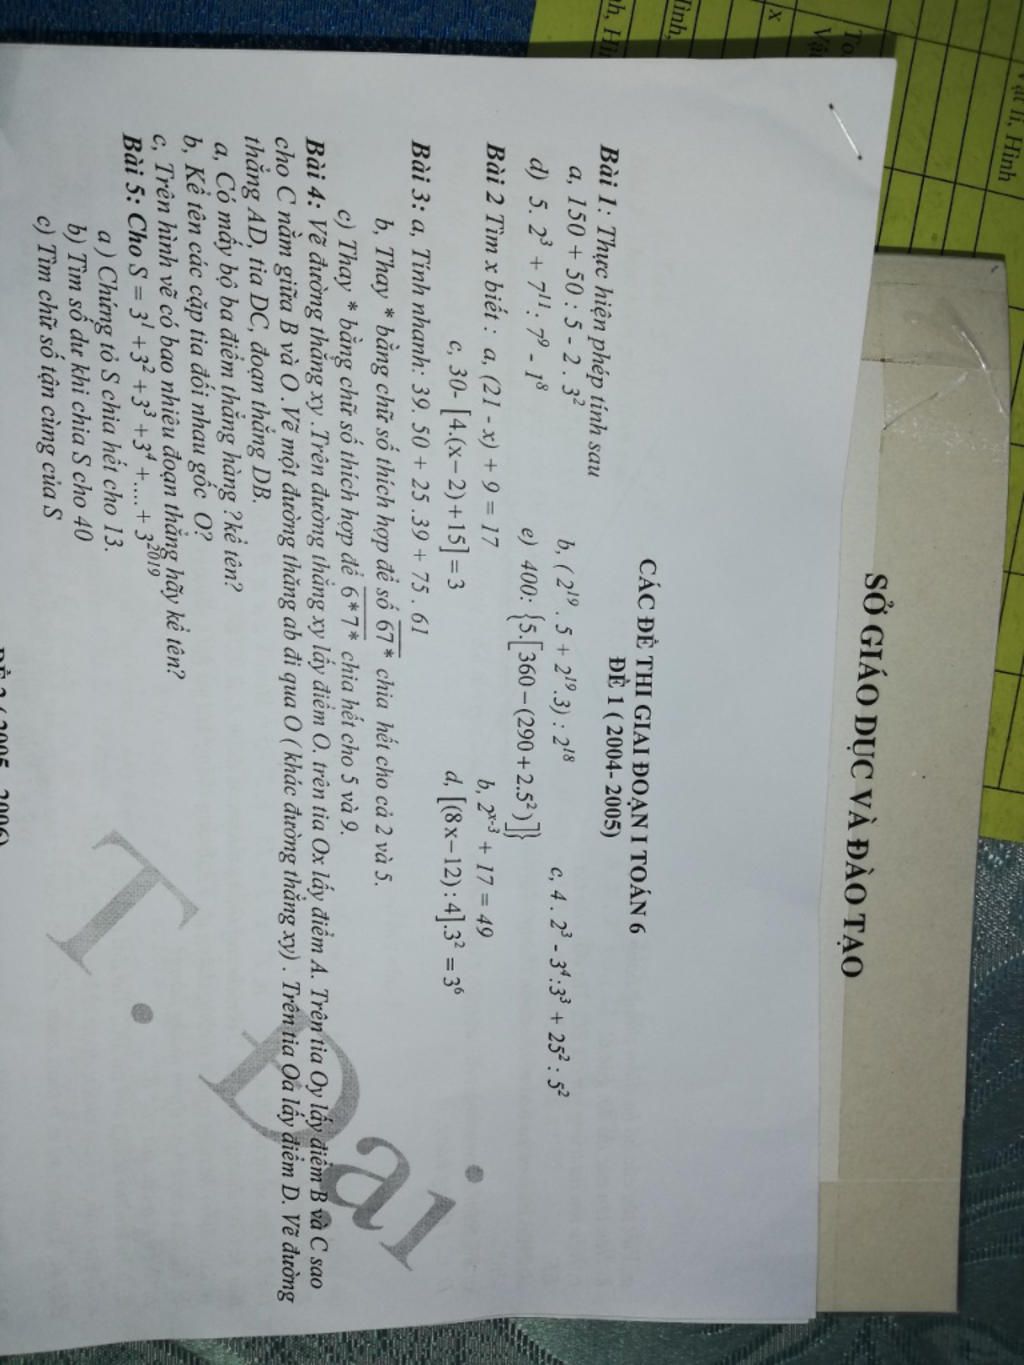 SỞ GIÁO DỤC VÀ ĐÀO TẠO
CÁC ĐỀ THI GIAI ĐOẠN I TOÁN 6
ĐỀ 1 ( 2004- 2005)
Bài 1: Thực hiện phép tính sau
a, 150 + 50 : 5 - 2 . 3² b, ( 2¹⁹ . 5 + 2¹⁹.3) : 2¹⁸ c, 4 . 2³ - 3⁴:3³ + 25² : 5²
d) 5. 2³ + 7¹¹: 7⁹ - 1⁸ e) 400: {5.[360 – (290 + 2.5²)]}
Bài 2 Tìm x biết : a, (21 - x) + 9 = 17 b, 2ˣ⁻³ + 17 = 49
c, 30- [4.(x – 2) + 15] = 3 d, [(8x – 12) : 4].3² = 3⁶
Bài 3: a, Tính nhanh: 39. 50 + 25 .39 + 75 . 61
b, Thay * bằng chữ số thích hợp để số 67 * chia hết cho cả 2 và 5.
c) Thay * bằng chữ số thích hợp để 6 * 7 * chia hết cho 5 và 9.
Bài 4: Vẽ đường thẳng xy .Trên đường thẳng xy lấy điểm O. trên tia Ox lấy điểm A. Trên tia Oy lấy điểm B và C sao
cho C nằm giữa B và O .Vẽ một đường thăng ab đi qua O ( khác đường thẳng xy) . Trên tia Oa lấy điểm D. Vẽ đường
thẳng AD, tia DC, đoạn thẳng DB.
a, Có mấy bộ ba điểm thẳng hàng ?kể tên?
b, Kể tên các cặp tia đối nhau gốc O?
c, Trên hình vẽ có bao nhiêu đoạn thẳng hãy kể tên?
Bài 5: Cho S = 3¹ + 3² + 3³ + 3⁴ + .... + 3²⁰¹⁹
a ) Chứng tỏ S chia hết cho 13.
b) Tìm số dư khi chia S cho 40
c) Tìm chữ số tận cùng của S
T . Đại